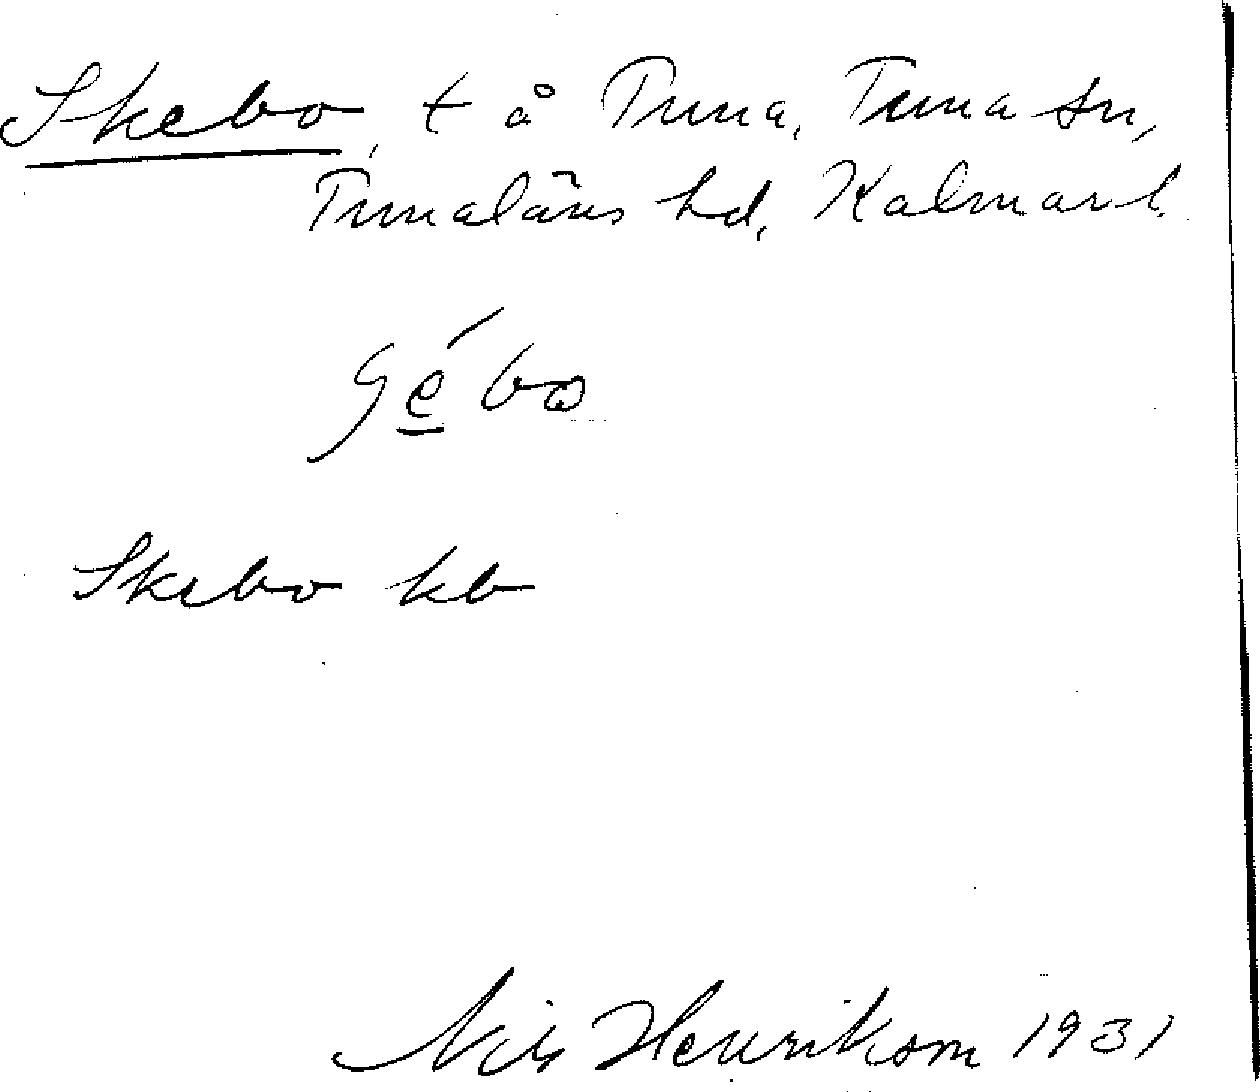 Skebo, t å Tuna, Tuna sn,
Tunaläns hd, Kalmar l.
ʂébɷ
Skebo kb
Nils Henrikson 1931